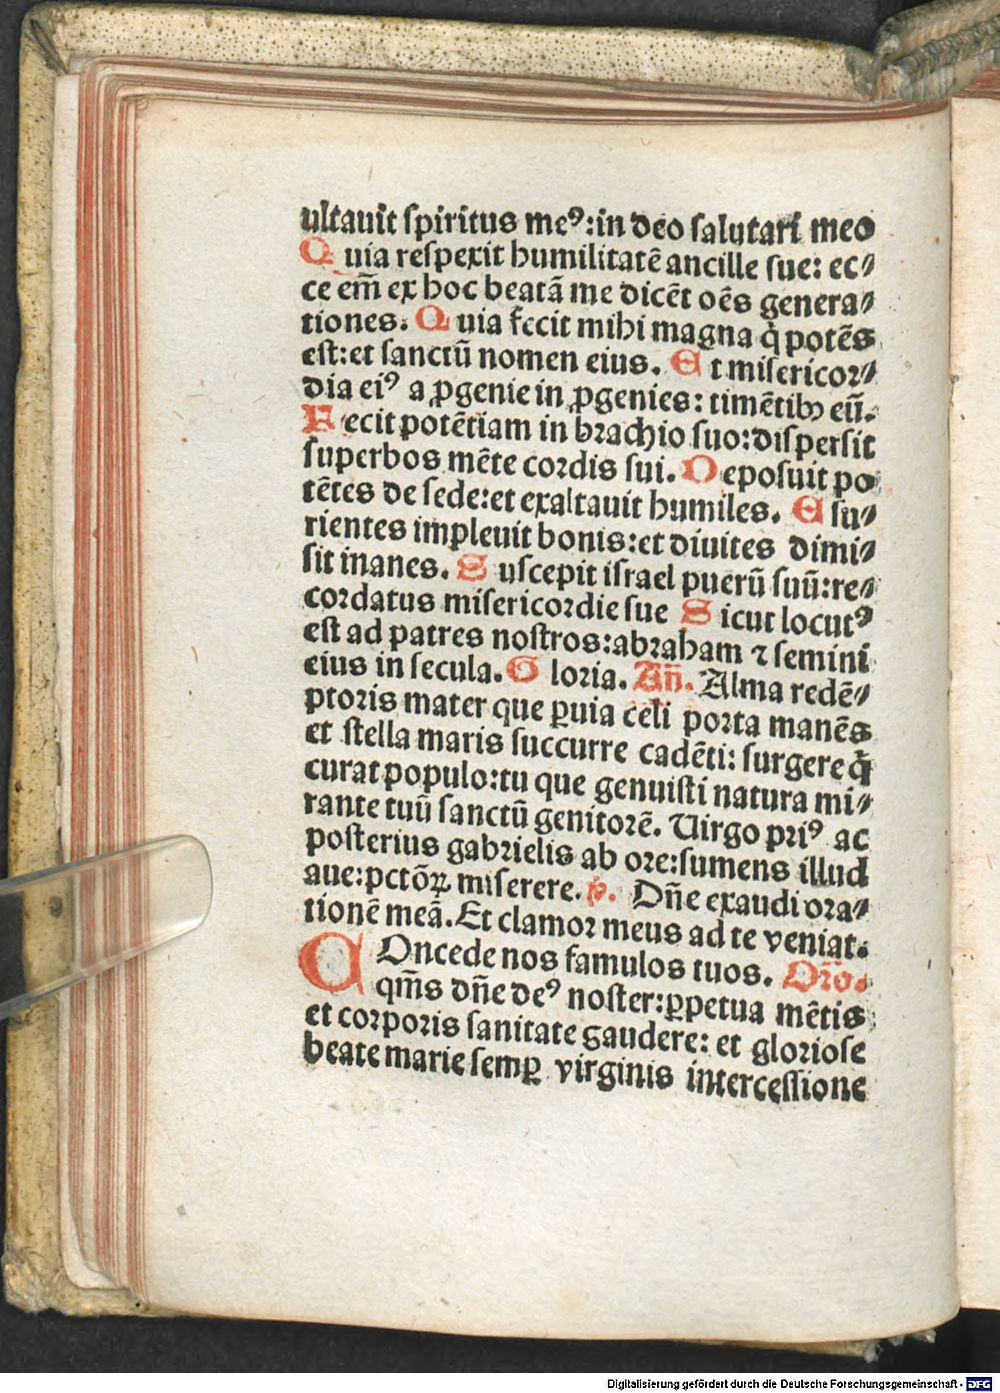 ultauit ſpiritus meꝰ:in deo ſalutari meo
Quia reſpexit humilitatē ancille ſue: ec⸗
ce em̄ ex hoc beatā me dicēt oēs genera⸗
tiones. Quia fecit mihi magna q̇ potēs
eſt:et ſanctū nomen eius. Et miſericoꝛ⸗
dia eiꝰ a ꝓgenie in ꝓgenies: timētibꝫ eū.
Fecit potētiam in bꝛachio ſuo:diſperſit
ſuperbos mēte coꝛdis ſui. Depoſuit po
tētes de ſede:et exaltauit humiles. Eſu⸗
rientes impleuit bonis:et diuites dimi⸗
ſit inanes. Suſcepit iſrael puerū ſuū:re⸗
coꝛdatus miſericoꝛdie ſue Sicut locutꝰ
eſt ad patres noſtros:abꝛaham ⁊ ſemini
eius in ſecula. Gloꝛia. Añ. Alma redē⸗
ptoꝛis mater que ꝑuia celi poꝛta manēs
et ſtella maris ſuccurre cadēti: ſurgere q̇
curat populo:tu que genuiſti natura mi⸗
rante tuū ſanctū genitoꝛē. Uirgo pꝛiꝰ ac
poſterius gabꝛielis ab oꝛe:ſumens illud
aue:pctōꝝ miſerere. ꝟ. Dñe exaudi oꝛa⸗
tionē meā. Et clamoꝛ meus ad te veniat.
COncede nos famulos tuos. Oꝛo.
qm̄s dñe deꝰ noſter:ꝑpetua mētis
et coꝛpoꝛis ſanitate gaudere: et gloꝛioſe
beate marie ſemꝑ virginis interceſſione
Digitalisierung gefördert durch die Deutsche Forschungsgemeinschaft - DFG